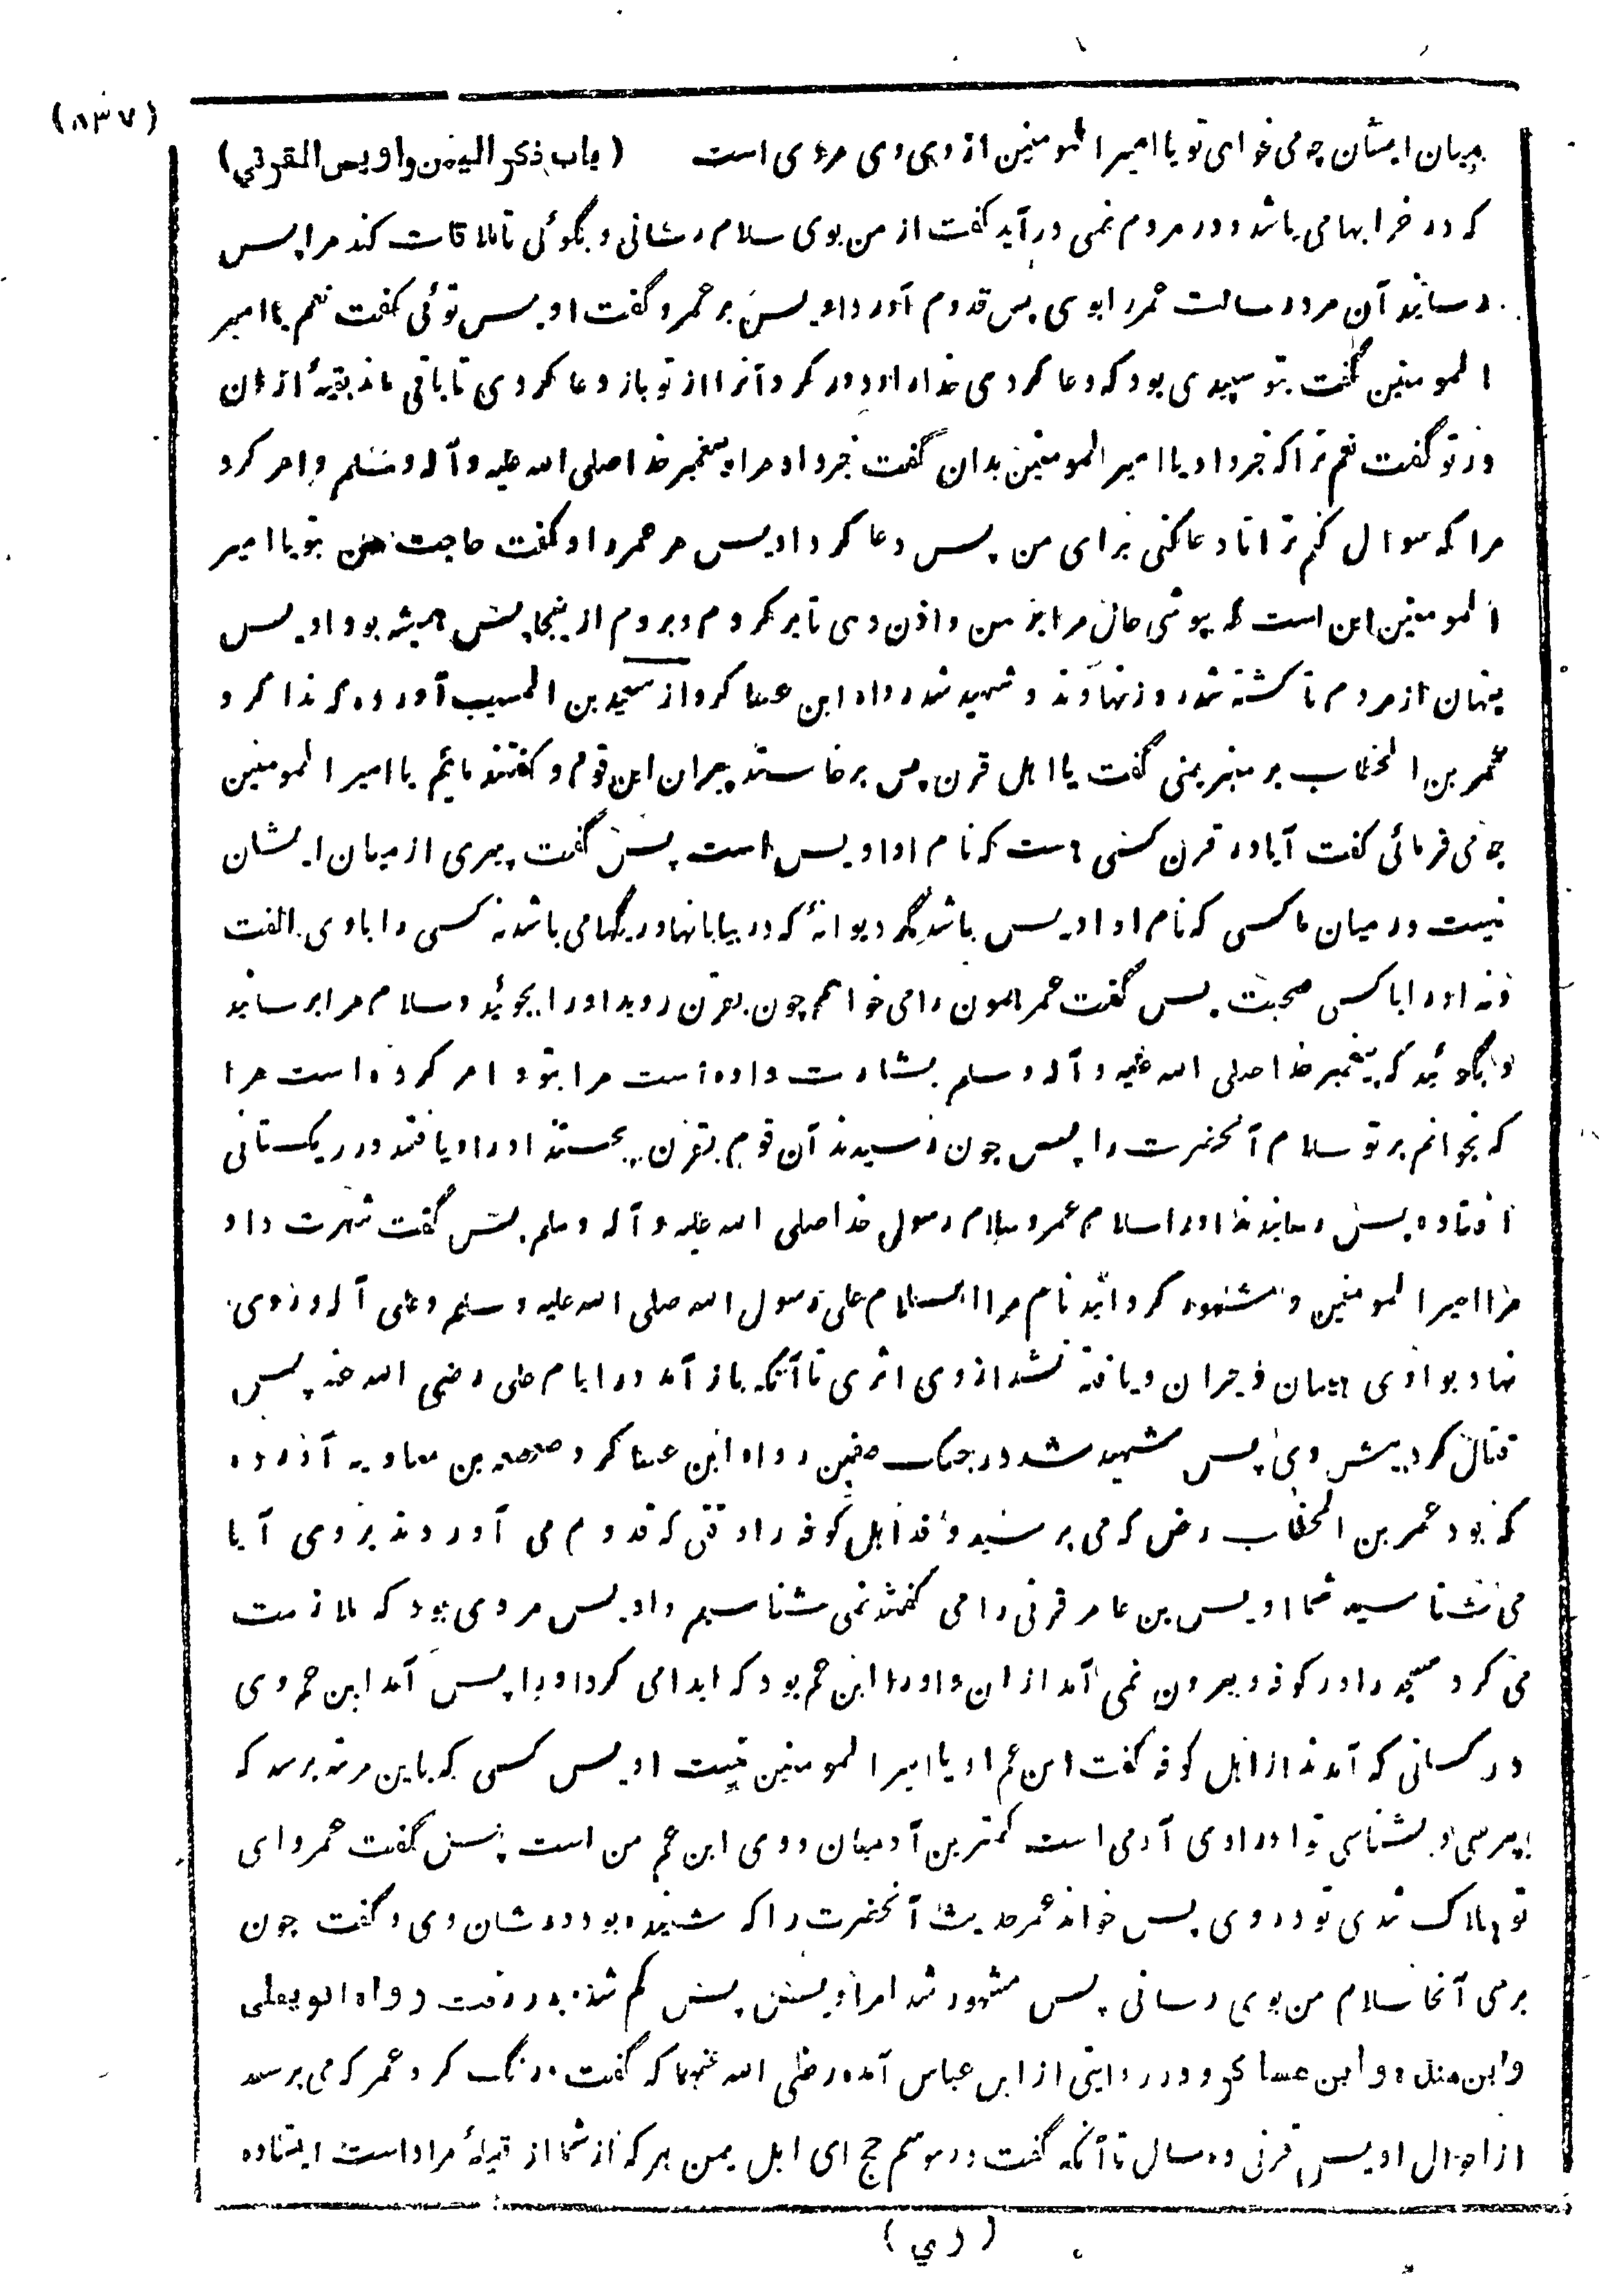 (۸۳۷)
(باب ذکر الیمن واویس القرني)
میان ایشان چه می خواهی تو یا امیر المومنین از وی وی مردی است
که در خرابها می باشد و در مردم نمی در آید گفت از من بوی سلام رسانی و بگوئی تا ملاقات کند مرا پس
رسانید آن مرد رسالت عمر را بوی پس قدوم آورد اویس بر عمر و گفت اویس توئی گفت نعم یا امیر
المومنین گفت بتو سپیدی بود که دعا کردی خدا را و دور کرد آنرا از تو باز دعا کردی تا باقی ماند بقیهٔ ازان
در تو گفت نعم ترا که خبر داد یا امیر المومنین بدان گفت خبر داد مرا پیغمبر خدا صلی الله علیه و آله و سلم و امر کرد
مرا که سوال کنم ترا تا دعا کنی برای من پس دعا کرد اویس مر عمر را و گفت حاجت من بتو یا امیر
المومنین این است که پوشی حال مرا بر من و اذن دهی تا بر گردم و بروم از ینجا پس همیشه بود اویس
پنهان از مردم تا کشته شد روز نهاوند و شهید شد رواه ابن عساکر و از سعید بن المسیب آورده که ندا کرد
عمر بن الخطاب بر منبر بمنی گفت یا اهل قرن پس برخاستند پیران این قوم و گفتند مائیم یا امیر المومنین
چه می فرمائی گفت آیا در قرن کسی هست که نام او اویس است پس گفت پیری از میان ایشان
نیست در میان ما کسی که نام او اویس باشد مگر دیوانهٔ که در بیابانها و ریگها می باشد نه کسی را با وی الفت
و نه او را با کسی صحبت پس گفت عمر همون را می خواهم چون بقرن روید او را بجوئید و سلام مرا برسانید
و بگوئید که پیغمبر خدا صلی الله علیه و آله و سلم بشارت داده است مرا بتو و امر کرده است مرا
که بخوانم بر تو سلام آنحضرت را پس چون رسیدند آن قوم بقرن بجستند او را و یافتند در ریگستانی
افتاده پس رسانیدند او را سلام عمر و سلام رسول خدا صلی الله علیه و آله و سلم پس گفت شهرت داد
مرا امیر المومنین و مشهور گردانید نام مرا السلام علی رسول الله صلی الله علیه و سلم و علی آله و روی
نهاد بوادی همان و حیران و یافته نشد از وی اثری تا آنکه باز آمد در ایام علی رضی الله عنه پس
قتال کرد پیش وی پس شهید شد در جنگ صفین رواه ابن عساکر و صعصعه بن معاویه آورده
که بود عمر بن الخطاب رض که می پرسید وفد اهل کوفه را وقتی که قدوم می آوردند بر وی آیا
می شناسید شما اویس بن عامر قرنی را می گفتند نمی شناسیم و اویس مردی بود که ملازمت
می کرد مسجد را در کوفه و بیرون نمی آمد ازان و او را ابن عم بود که ایذا می کرد او را پس آمد ابن عم وی
در کسانی که آمدند از اهل کوفه گفت ابن عم او یا امیر المومنین نیست اویس کسی که باین مرتبه برسد که
بپرسی و بشناسی تو او را وی آدمی است کمترین آدمیان و وی ابن عم من است پس گفت عمر وای
تو هلاک شدی تو در وی پس خواند عمر حدیث آنحضرت را که شنیده بود در شان وی و گفت چون
برسی آنجا سلام من بوی رسانی پس مشهور شد امر اویس پس گم شد و بدر رفت رواه ابو یعلی
و ابن منده و ابن عساکر و در روایتی از ابن عباس آمده رضی الله عنهما که گفت درنگ کرد عمر که می پرسد
از احوال اویس قرنی ده سال تا آنکه گفت در موسم حج ای اهل یمن هر که از شما از قبیلهٔ مراد است ایستاده
(ري)